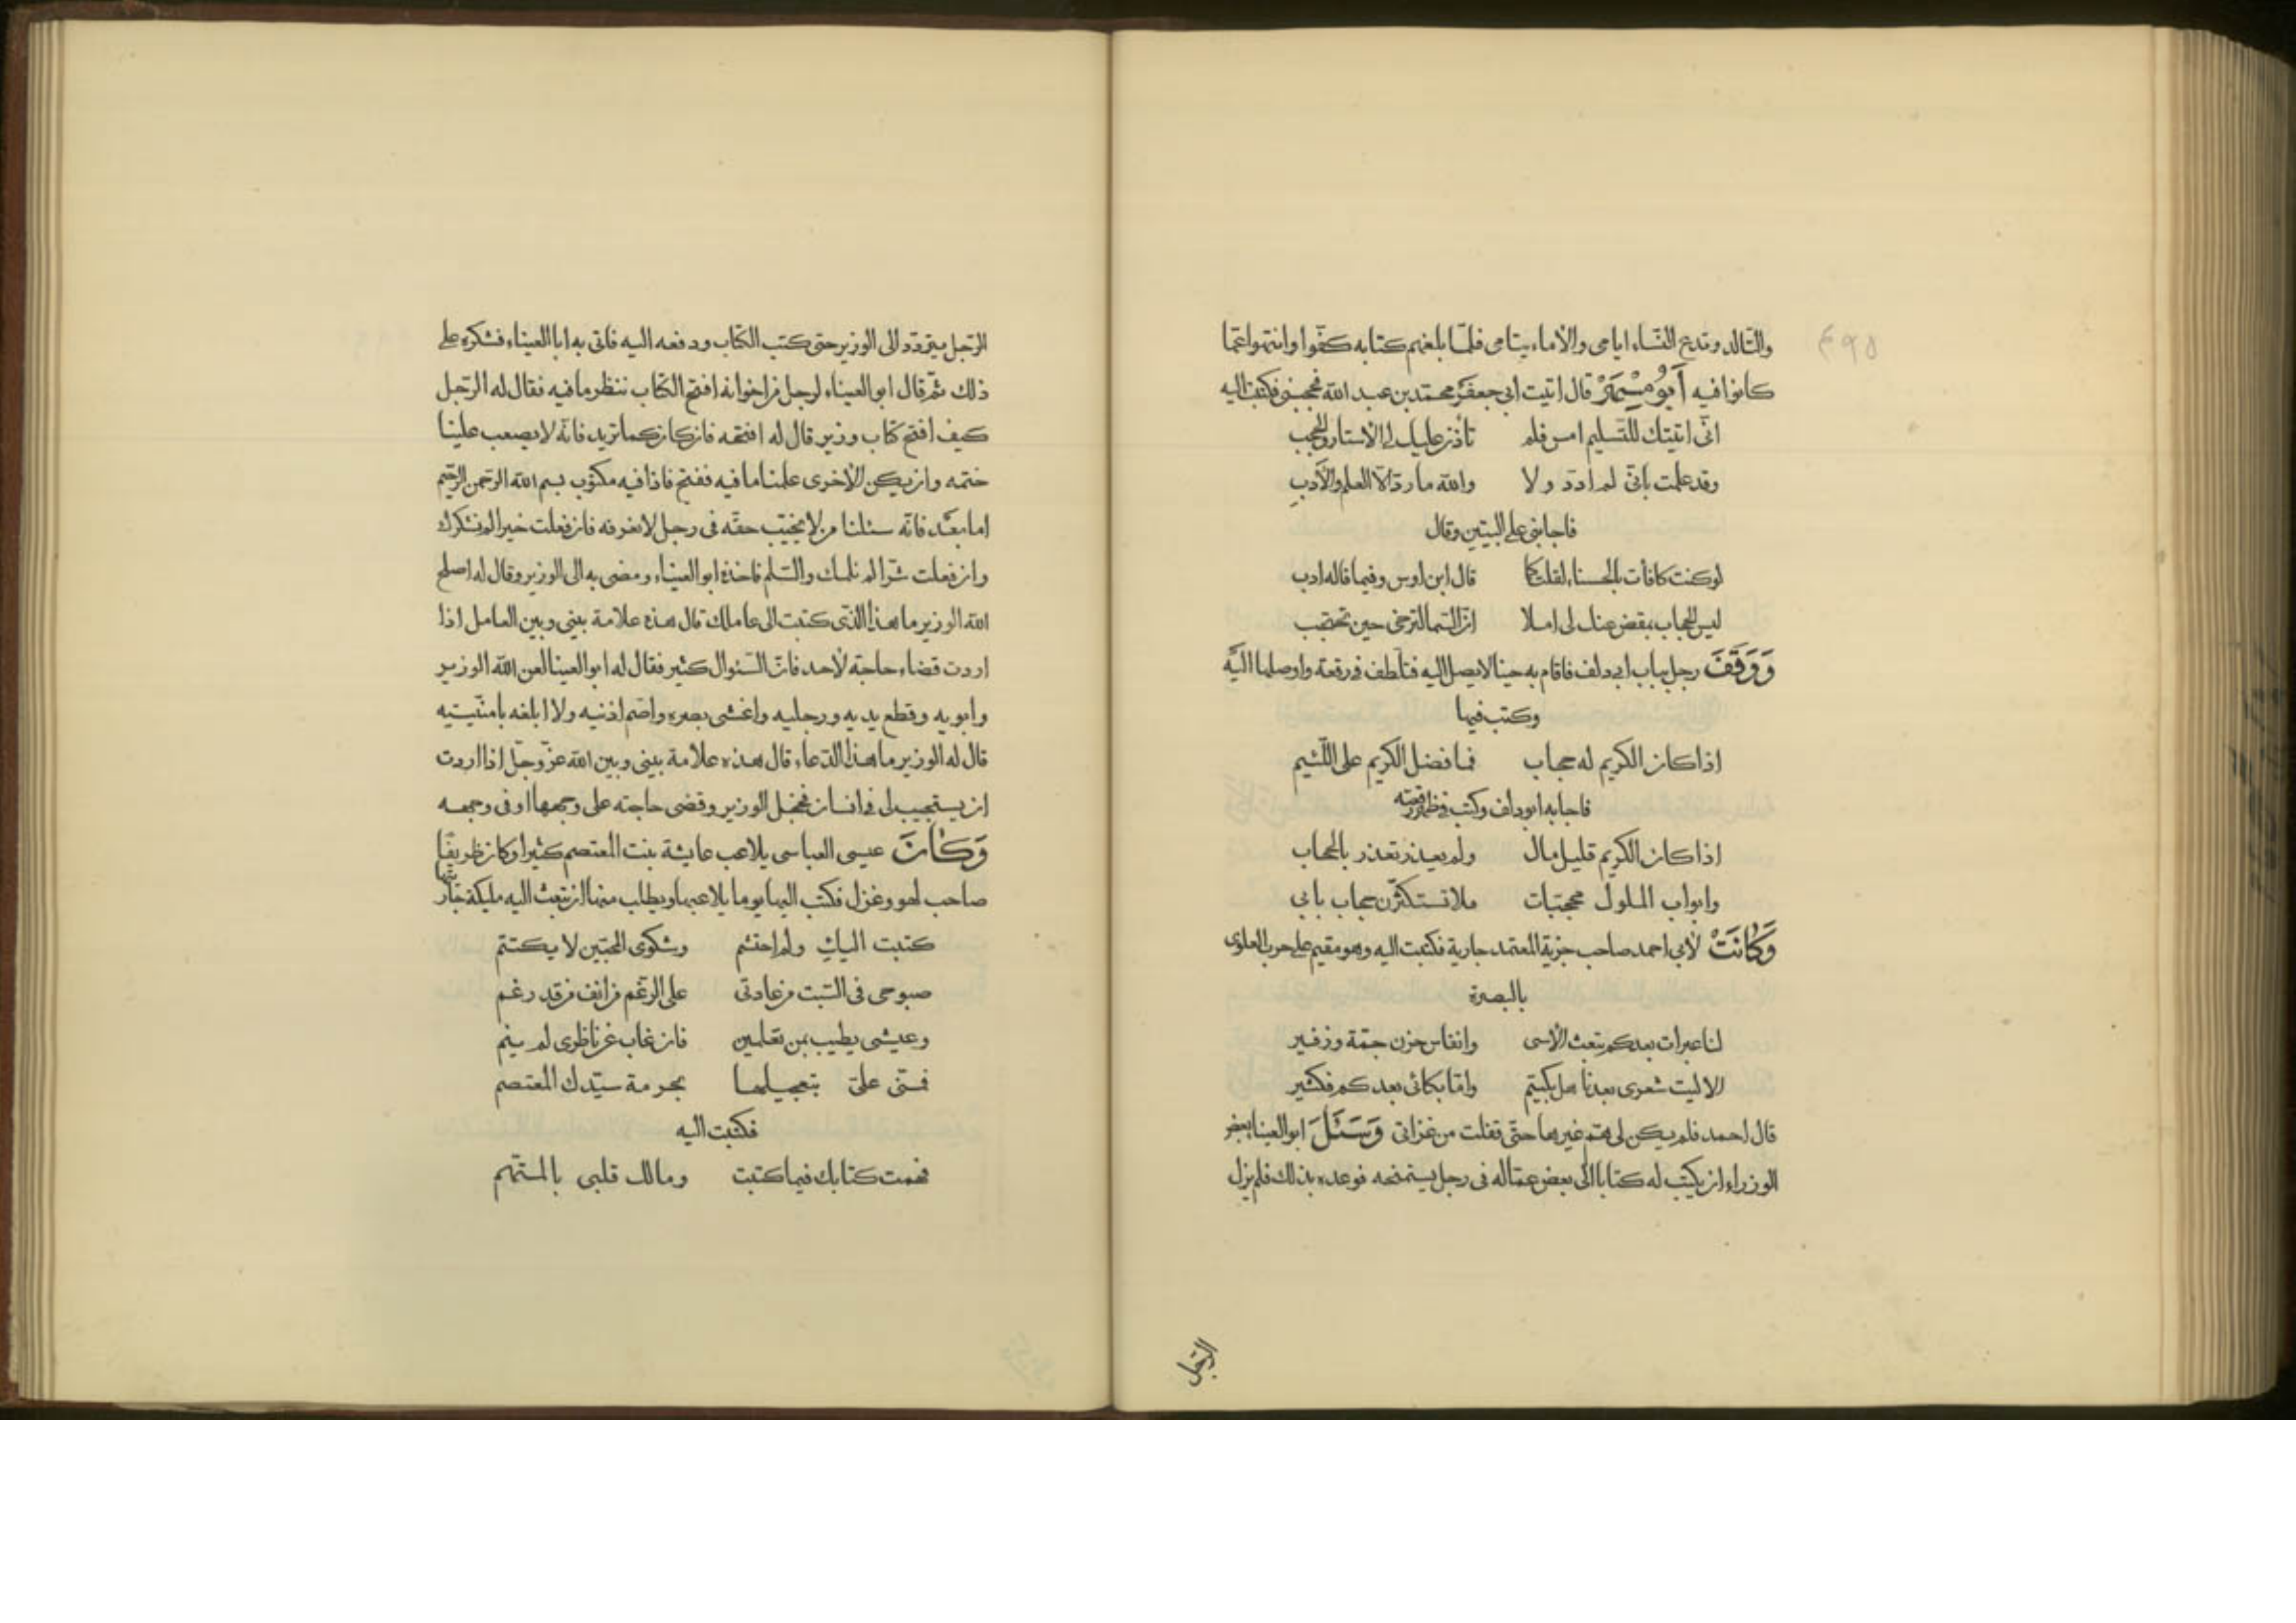 والتالد وتدع النساء ايامى والاماء يتامى فلمّا بلغهم كتابه كفّوا وانتهوا عمّا
كانوا فيه أَبُو مُسْهِرْ قال اتيت ابى جعفر محمّد بن عبد الله فحجبنى فكتبت اليه
انّى اتيتك للتسليم امس فلم تأذن عليك لى الاستار والحجب
وقد علمت بانّى لم اردّ ولا والله ما ردّ الّا العلم والأدب
فاجابنى على البيتين وقال
لو كنت كافأت بالحسناء لقلت كما قال ابن اوس وفيما قاله ادب
ليس الحجاب بمقض عنك لى املا انّ السّما لترجّى حين تحتجب
وَوَقَفَ رجل بباب ابى دلف فاقام به حينا لا يصل اليه فتلطف فى رقعة واوصلها اليه
وكتب فيها
اذا كان الكريم له حجاب فما فضل الكريم على اللّئيم
فاجابه ابو دلف وكتب فى ظهر رقعته
اذا كان الكريم قليل مال ولم يعذر تعذر بالحجاب
وابواب الملوك محجبات فلا تستكثرن حجاب بابى
وَكَانَتْ لأبى احمد صاحب حربة المعتمد جارية فكتبت اليه وهو مقيم على حرب العلوى
بالبصرة
لنا عبرات بعدكم تبعث الأسى وانفاس حزن جمّة وزفير
الا ليت شعرى بعدنا هل بكيتم وامّا بكائى بعدكم فكثير
قال احمد فلم يكن لى همّ غيرها حتّى قفلت من غزاتى وَسَئَلَ ابو العينا بعض
الوزراء ان يكتب له كتابا الى بعض عمّاله فى رجل يستمنحه فوعده بذلك فلم يزل
الرّجل
الرّجل يتردّد الى الوزير حتى كتب الكتاب ودفعه اليه فاتى به ابا العيناء فشكره على
ذلك ثمّ قال ابو العيناء لرجل من اخوانه افتح الكتاب ننظر ما فيه فقال له الرّجل
كيف افتح كتاب وزير قال له افتحه فان كان كما نريد فانّه لا يصعب علينا
ختمه وان يكن الاخرى علمنا ما فيه ففتح فاذا فيه مكتوب بسم الله الرّحمن الرّحيم
اما بعد فانّه سئلنا من لا يخيب حقّه فى رجل لا نعرفه فان فعلت خيرا لم نشكرك
وان فعلت شرّا لم نلمك والسّلم فاخذه ابو العيناء ومضى به الى الوزير وقال له اصلح
الله الوزير ما هذا الّذى كتبت الى عاملك قال هذه علامة بينى وبين العامل اذا
اردت قضاء حاجة لأحد فانّ السّئوال كثير فقال له ابو العينا لعن الله الوزير
وابويه وقطع يديه ورجليه واغشى بصره واصمّ اذنيه ولا ابلغه بامنّيته
قال له الوزير ما هذا الدّعاء قال هذه علامة بينى وبين الله عزّ وجلّ اذا اردت
ان يستجيب لى فى انسان فخجل الوزير وقضى حاجته على وجهها اوفى وجهه
وَكَانَ عيسى العباسى يلاعب عايشة بنت المعتصم كثيرا وكان ظريفًا
صاحب لهو وغزل فكتب اليها يوما يلاعبها ويطلب منها ان تبعث اليه مليكة جاريتها
كتبت اليك ولم احتشم وشكوى المحبّين لا يكتتم
صبوحى فى السّبت من عادتى على الرّغم من انف من قد رغم
وعيشى يطيب بمن تعلمين فان غاب عن ناظرى لم ينم
فمنّى علىّ بتعجيلها بحرمة سيّدك المعتصم
فكتبت اليه
فهمت كتابك فيما كتبت ومالك قلبى بالمتّهم